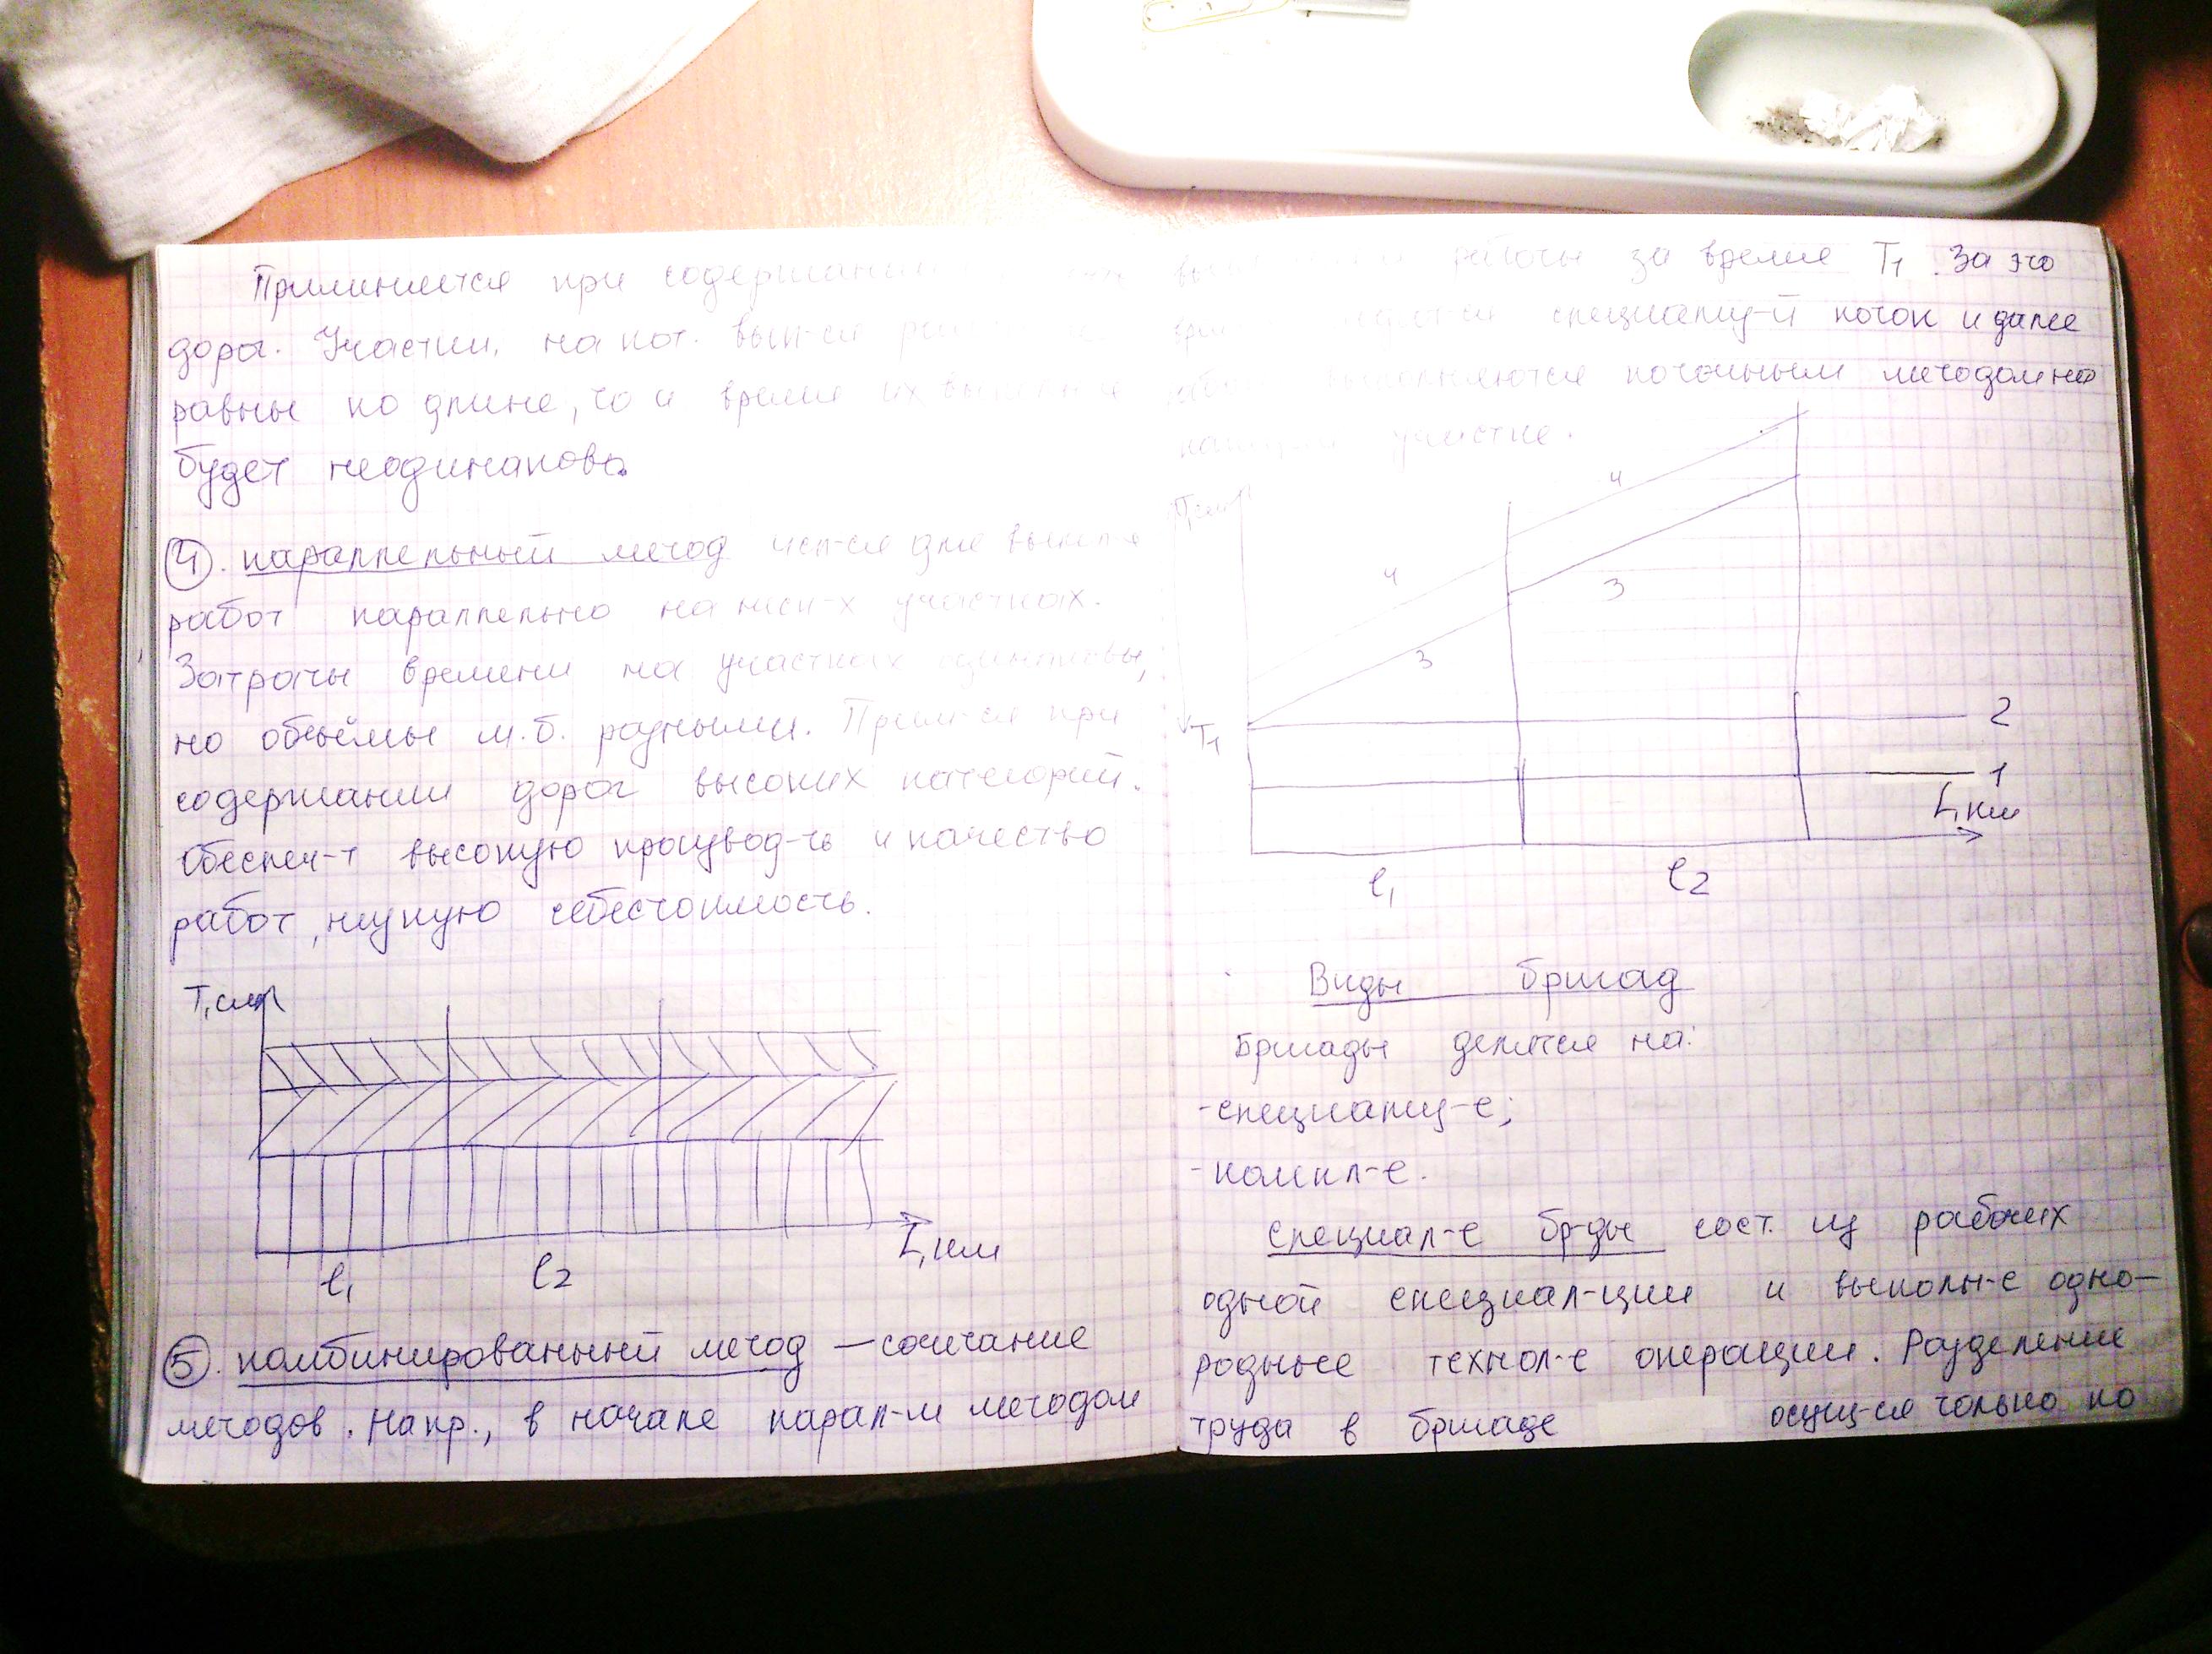 Применяется при содержании
дорог. Участки, на кот. вып-ся
равны по длине, то и время их
будет неодинаково.
4. параллельный метод исп-ся для
работ параллельно на неск-х участках.
Затраты времени на участках одинаковы,
но объёмы м.б. разными. Прим-ся при
содержании дорог высоких категорий.
Обеспеч-т высокую производ-ть и качество
работ, низкую себестоимость.
T, см
L, км
l1 l2
5. комбинированный метод – сочетание
методов. Напр., в начале парал-м методом
работы за время T1. За это
специализ-й поток и далее
выполняются поточным методом на
участке.
T, см
4
4
3
3
T1
2
1
L, км
l1 l2
Виды бригад
Бригады делятся на:
-специализ-е;
-компл-е.
Специал-е бр-ды сост. из рабочих
одной специал-ции и выполн-е одно-
родные технол-е операции. Разделение
труда в бригаде осущ-ся только по